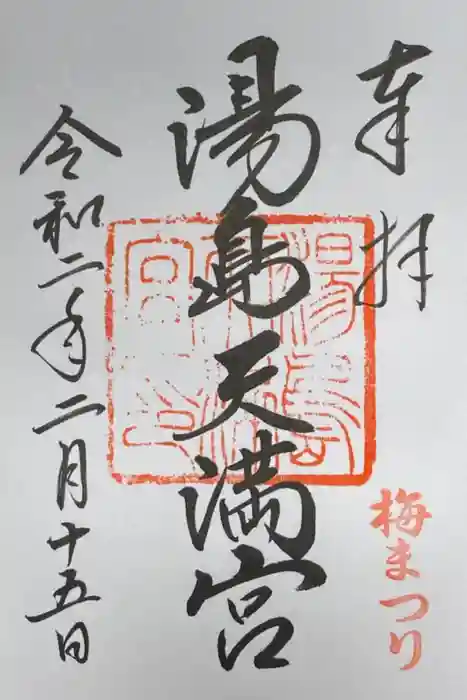 奉拝
梅まつり
湯島天満宮
令和二年二月十五日